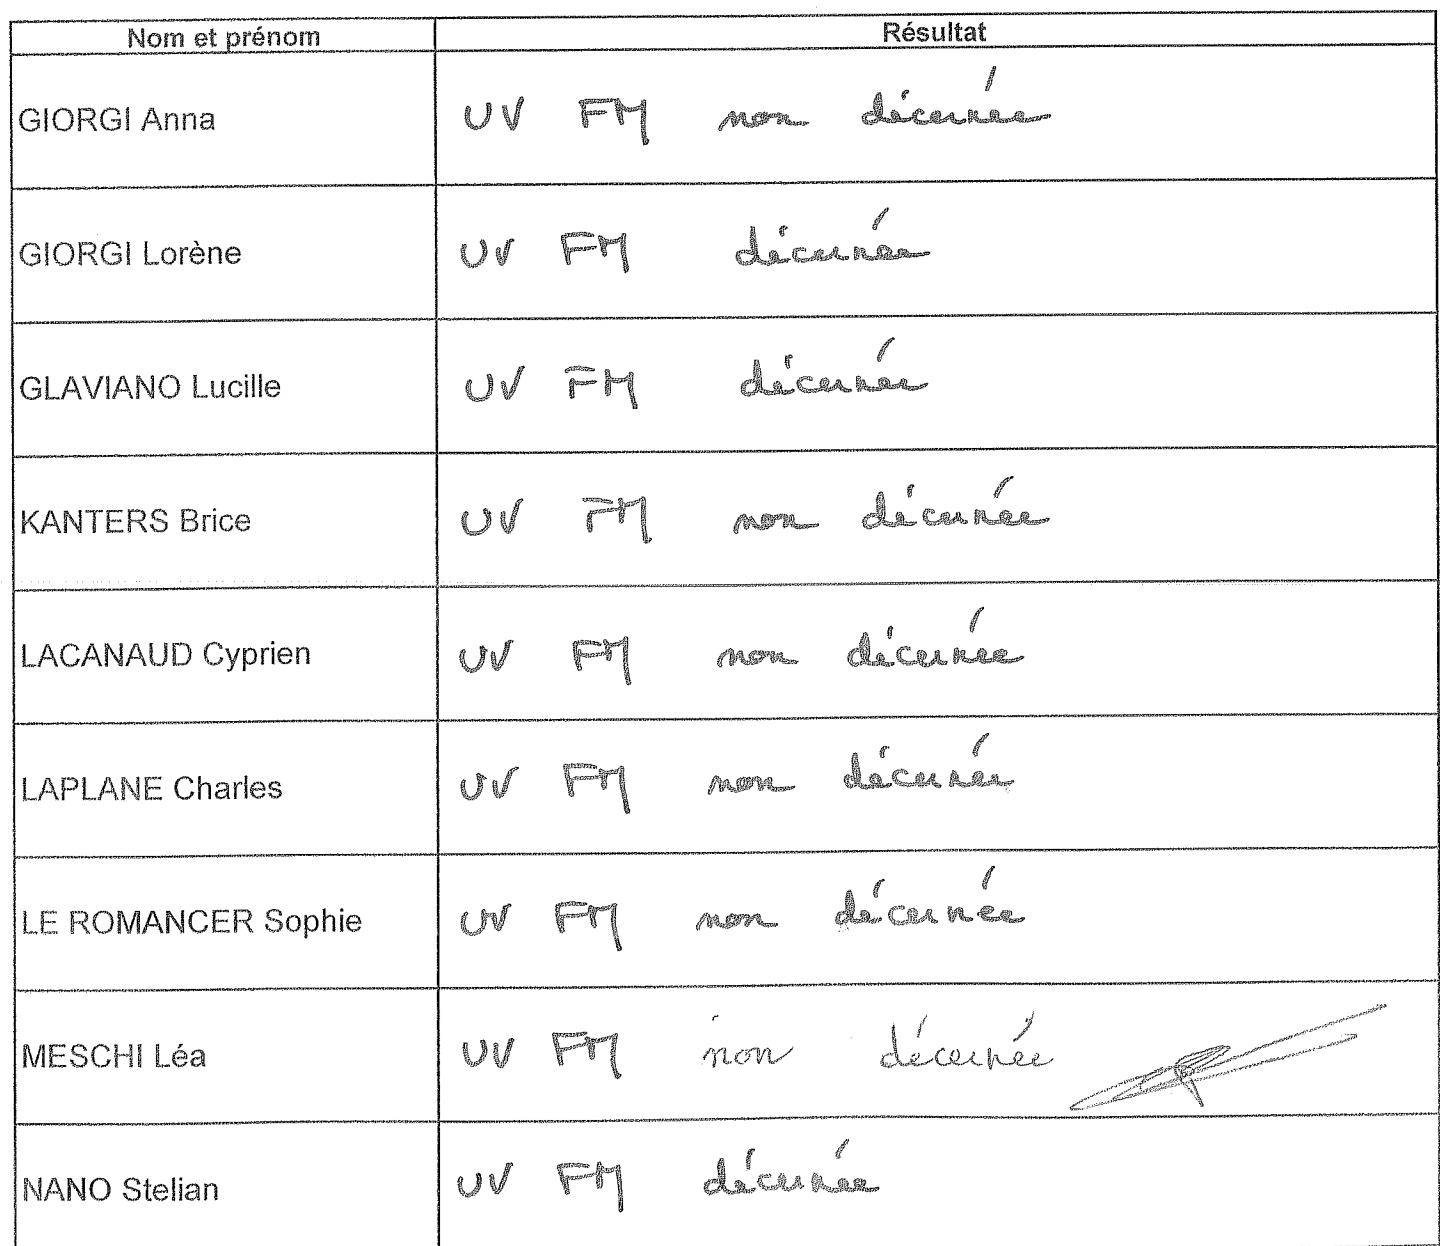 Nom et prénom Résultat
GIORGI Anna UV FM non décernée
GIORGI Lorène UV FM décernée
GLAVIANO Lucille UV FM décernée
KANTERS Brice UV FM non décernée
LACANAUD Cyprien UV FM non décernée
LAPLANE Charles UV FM non décernée
LE ROMANCER Sophie UV FM non décernée
MESCHI Léa UV FM non décernée
NANO Stelian UV FM décernée